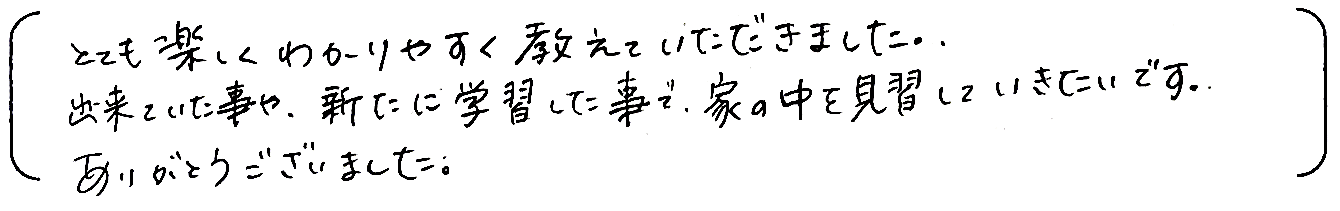 とても楽しくわかりやすく教えていただきました。
出来ていた事や、新たに学習した事で、家の中を見習していきたいです。
ありがとうございました。